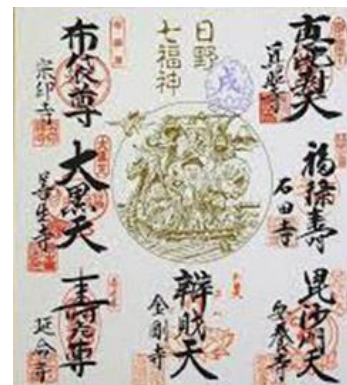 真照寺
福禄寿
石田寺
毘沙門天
安養寺
日野
七福神
戌
辨財天
金剛寺
布袋尊
宗印寺
大黒天
善生寺
壽老尊
延命寺